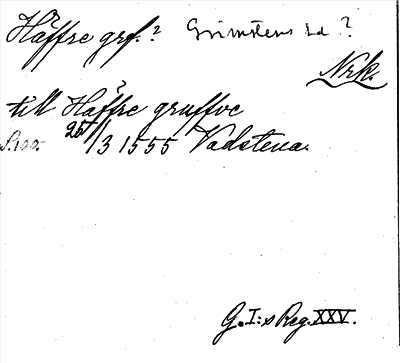 Häffre grf.? Grimstens sd ?
Nrk.
till Häffre gruffve
S. 100. 25/3 1555 Vadstena.
G. I:s Reg. XXV.